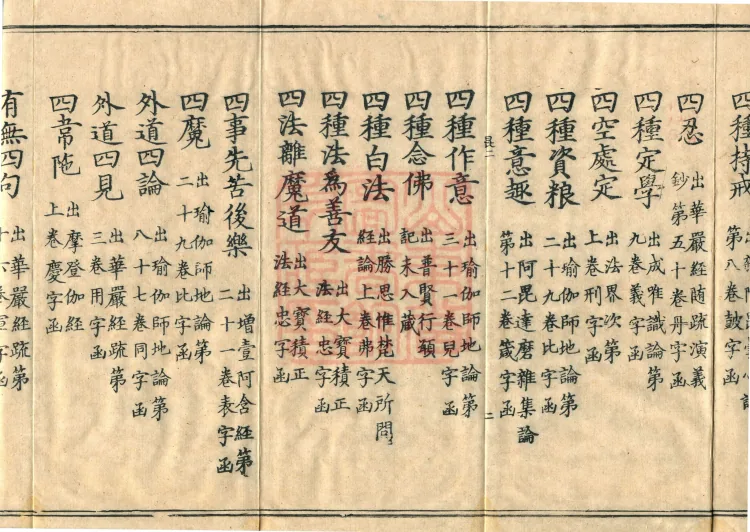 四種持戒
第八卷鼓字函
四忍 出華嚴經随疏演義
鈔第五十卷丹字函
四種定學 出成唯識論第
九卷義字函
四空處定 出法界次第
上卷刑字函
四種資粮 出瑜伽師地論第
二十九卷比字函
四種意趣 出阿毘達磨雜集論
第十二卷箴字函
四種作意 出瑜伽師地論第
三十一卷兒字函
四種念佛 出普賢行願
記未入蔵
四種白法 出勝思惟梵天所問
經論上卷弗字函
四種法為善友 出大寶積正
法經忠字函
四法離魔道 出大寶積正
法經忠字函
四事先苦後樂 出增壹阿含經第
二十一卷表字函
四魔 出瑜伽師地論第
二十九卷比字函
外道四論 出瑜伽師地論第
八十七卷同字函
外道四見 出華嚴經疏第
三卷用字函
四韋陁 出摩登伽經
上卷慶字函
有無四句 出華嚴經疏第
十六卷宣字函
二